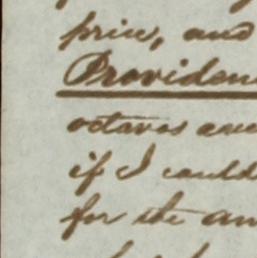 price, and
Providen
octavos and
if I could
for the am